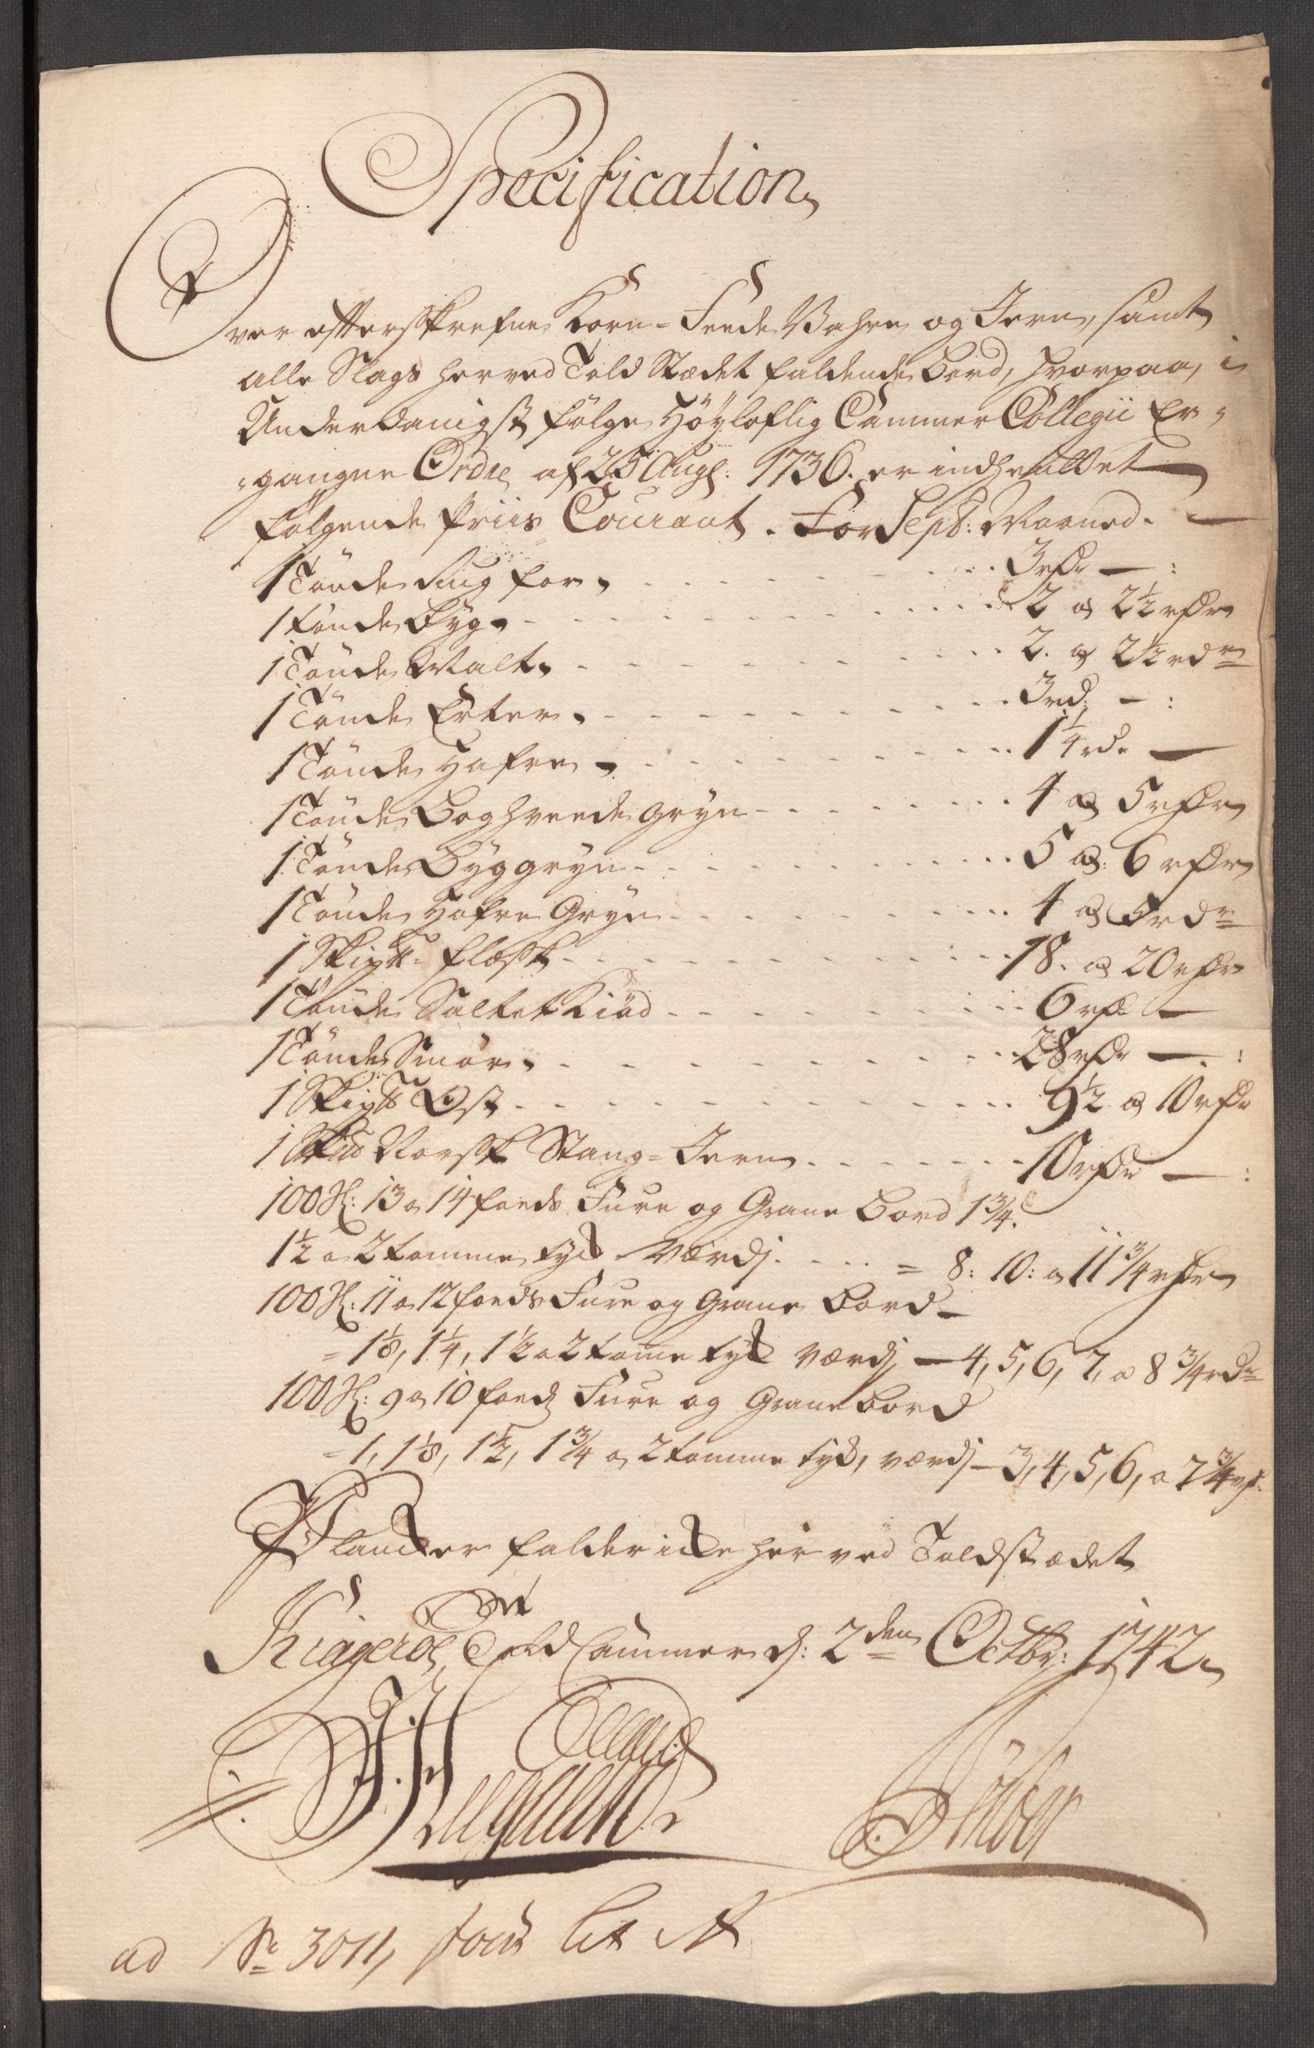 Specification
Over efterskrefne Korn- Feede Wahre og Jern, samt
alle Slags her ved Told Stædet faldende Bord, hvorpaa, i
Underdanigst følge Høyloflig Cammer Collegii Er-
gangne Ordre af 25 Aug: 1736. er indhendtet
følgende Priis Courant. For Sept: Maaned.
1 Tønde Rug for 3 rdr
1 Tønde Byg 2 a 2½ rdr
1 Tønde Malt 2. a 2½ rdr
1 Tønde Erter 3 rd:
1 Tønde Hafre 1¼ rd.
1 Tønde Boghveede gryn 4 a 5 rdr
1 Tønde Byggryn 5 a 6 rdr
1 Tønde Hafre Gryn 4 a 5 rdr
1 Skip℔ Flæsk 18. a 20 rdr
1 Tønde Saltet Kiød 6 rd
1 Tønde Smør 28 rdr
1 Skip℔ Ost 9½ a 10 rdr
1 Norsk Stang-Jern 10 rdr
100 St: 13 a 14 foeds Fure og Grane Bord 1¾.
1½ a 2 tomme tyk Værdj = 8: 10: a 11¾ rdr
100 St: 11 a 12 foeds Fure og Grane Bord
= 1⅛, 1¼, 1½ a 2 tome tyk værdj 4, 5, 6, 7, a 8¾ rdr
100 St: 9 a 10 foeds Fure og Grane Bord
= 1, 1⅛, 1½, 1¾ a 2 tomme tyk, værdj 3, 4, 5, 6, a 7¾ rd.
Plancker falder icke her ved Toldstædet
Kragerøe Told Cammer d: 2den Octbr: 1742.
ad No 3011,